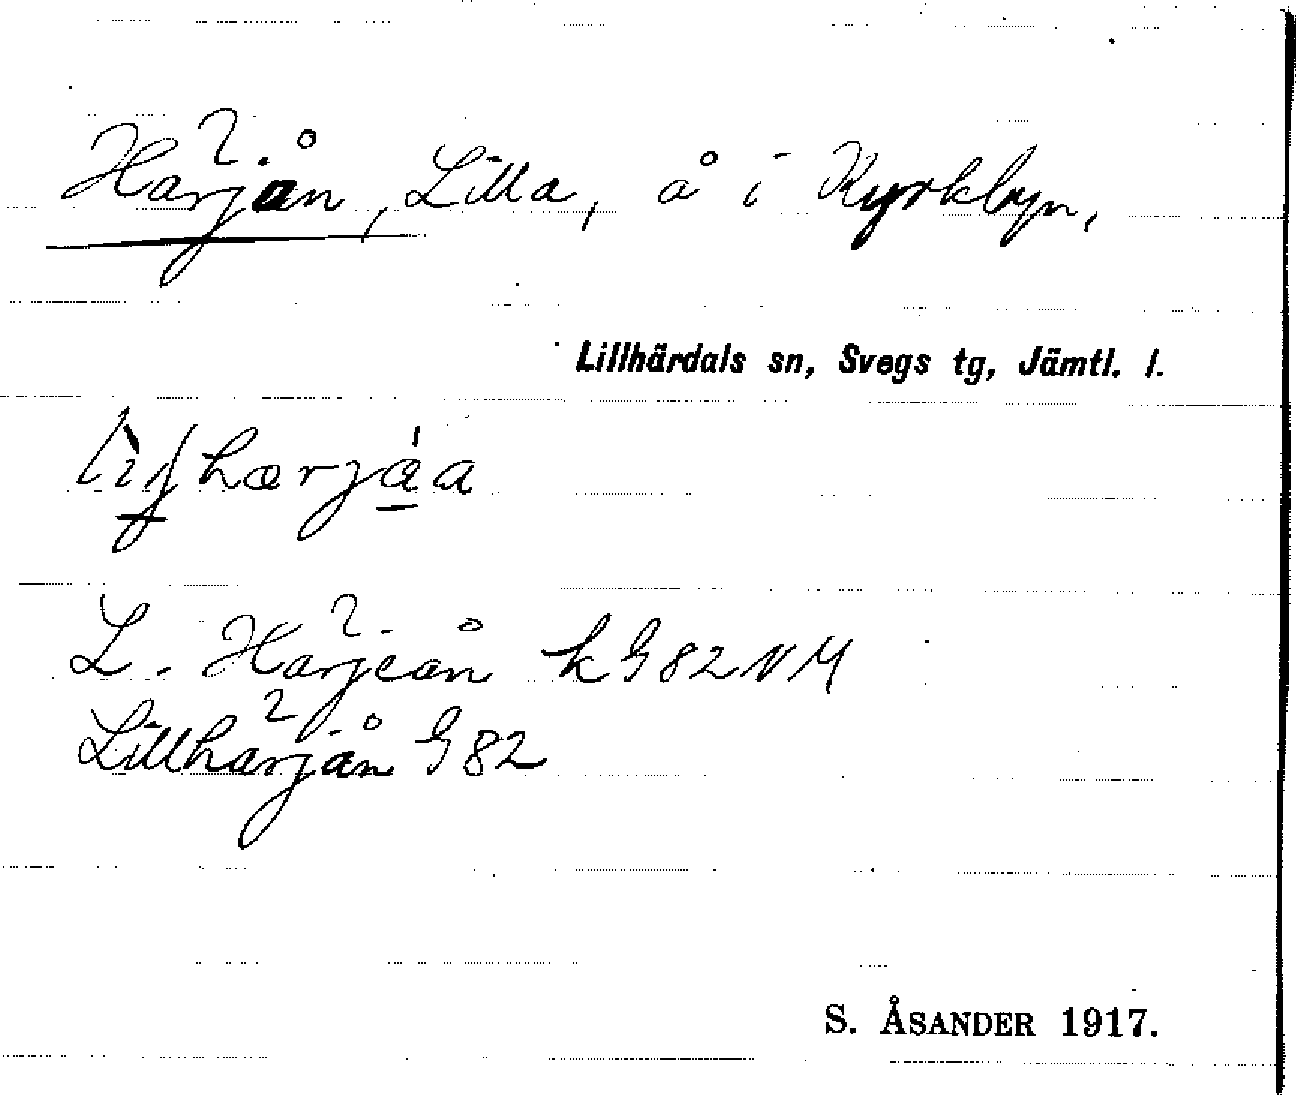 Härjån, Lilla, å i Kyrkbyn,
Lillhärdals sn, Svegs tg, Jämtl. l.
L. Härjeån k G 82 NM
Lillhärjån G 82
S. ÅSANDER 1917.